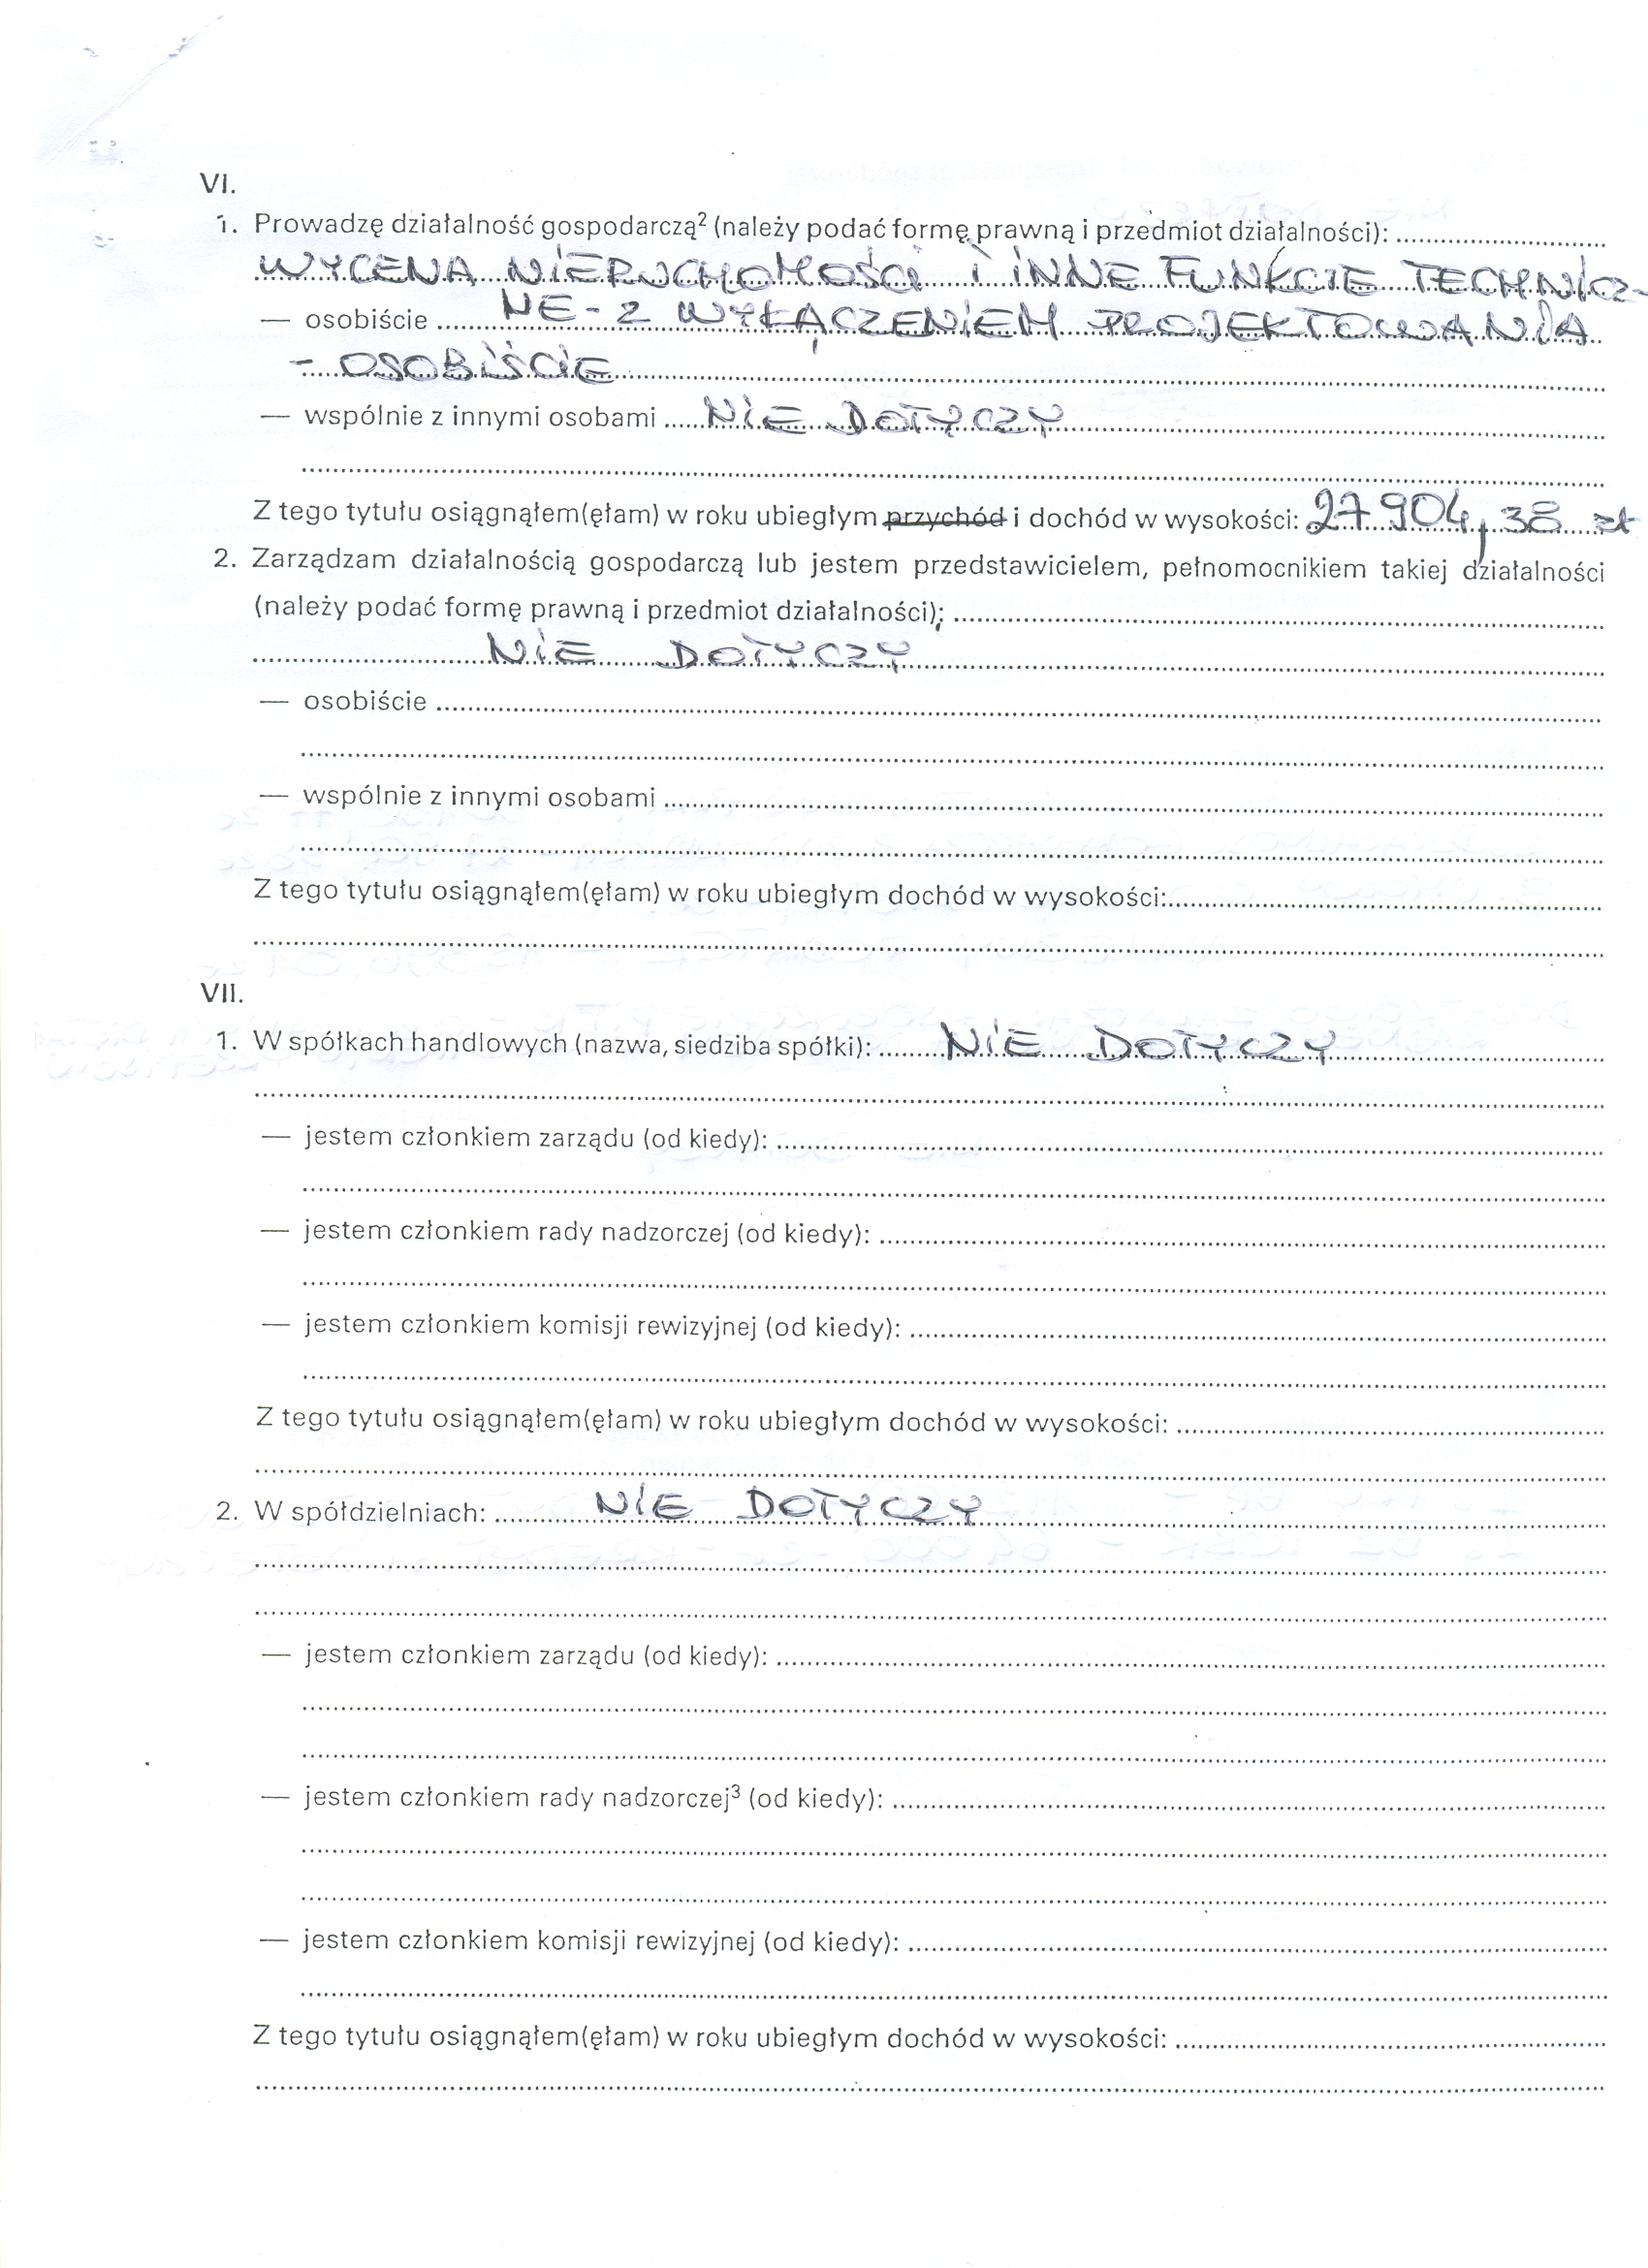 VI.
1. Prowadzę działalność gospodarczą² (należy podać formę prawną i przedmiot działalności):
WYCENA NIERUCHOMOŚCI I INNE FUNKCJE TECHNICZ-
— osobiście NE - Z WYŁĄCZENIEM PROJEKTOWANIA
- OSOBIŚCIE
— wspólnie z innymi osobami NIE DOTYCZY
Z tego tytułu osiągnąłem(ęłam) w roku ubiegłym przychód i dochód w wysokości: 27 904,38 zł
2. Zarządzam działalnością gospodarczą lub jestem przedstawicielem, pełnomocnikiem takiej działalności
(należy podać formę prawną i przedmiot działalności):
NIE DOTYCZY
— osobiście
— wspólnie z innymi osobami
Z tego tytułu osiągnąłem(ęłam) w roku ubiegłym dochód w wysokości:
VII.
1. W spółkach handlowych (nazwa, siedziba spółki): NIE DOTYCZY
— jestem członkiem zarządu (od kiedy):
— jestem członkiem rady nadzorczej (od kiedy):
— jestem członkiem komisji rewizyjnej (od kiedy):
Z tego tytułu osiągnąłem(ęłam) w roku ubiegłym dochód w wysokości:
2. W spółdzielniach: NIE DOTYCZY
— jestem członkiem zarządu (od kiedy):
— jestem członkiem rady nadzorczej³ (od kiedy):
— jestem członkiem komisji rewizyjnej (od kiedy):
Z tego tytułu osiągnąłem(ęłam) w roku ubiegłym dochód w wysokości: